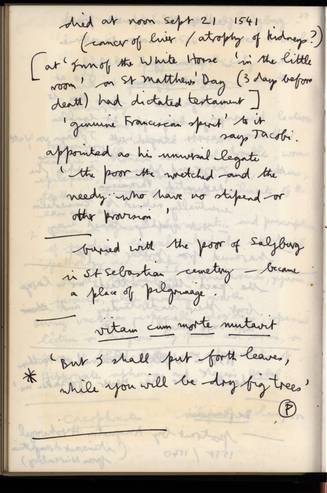 died at noon Sept 21 1541
(cancer of liver / atrophy of kidneys?)
[at 'Inn of the White Horse 'in the little
room' on St Matthews' Day (3 days before
death) had dictated testament]
'genuine Franciscan spirit' to it
says Jacobi.
appointed as his universal legate
'the poor the wretched and the
needy, who have no stipend or
other provision'
buried with the poor of Salzburg
in St Sebastian cemetery – became
a place of pilgrimage.
vitam cum morte mutavit
* 'But I shall put forth leaves,
while you will be dry fig trees'
(P)